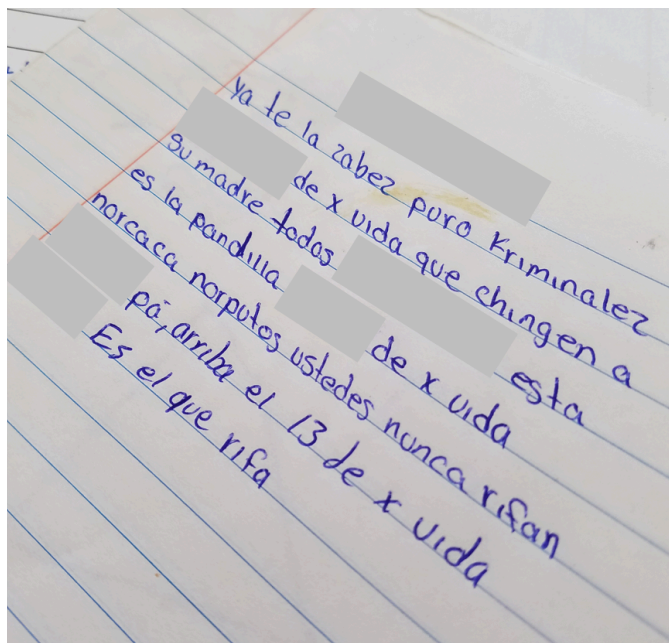 ya te la zabez puro Kriminalez
de x vida que chingen a
su madre todos esta
es la pandilla de x vida
norcaca norputos ustedes nunca rifan
pa, arriba el 13 de x vida
Es el que rifa